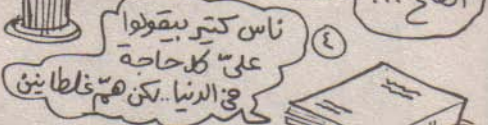 ناس كتير بيقولوا
علىّ كل حاجة
فى الدنيا..لكن همّ غلطانين
٤